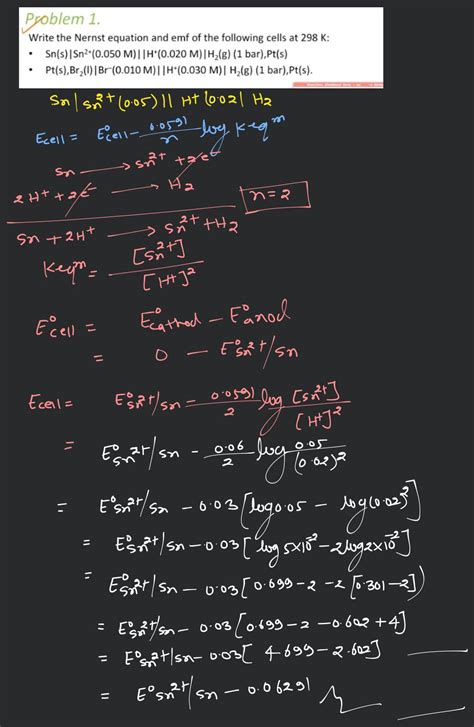 Problem 1.
Write the Nernst equation and emf of the following cells at 298 K:
• Sn(s)|Sn²⁺(0.050 M)||H⁺(0.020 M)|H₂(g) (1 bar),Pt(s)
• Pt(s),Br₂(l)|Br⁻(0.010 M)||H⁺(0.030 M)| H₂(g) (1 bar),Pt(s).
Sn | Sn²⁺ (0.05) || H⁺ (0.02| H₂
Ecell = E°cell - 0.0591/n log Keqᵐ
Sn → Sn²⁺ + 2e⁻
2H⁺ + 2e⁻ → H₂
n = 2
Sn + 2H⁺ → Sn²⁺ + H₂
Keqᵐ = [Sn²⁺] / [H⁺]²
E°cell = E°cathod - E°anod
= 0 - E°Sn²⁺/Sn
Ecell = E°Sn²⁺/Sn - 0.0591/2 log [Sn²⁺]/[H⁺]²
= E°Sn²⁺/Sn - 0.06/2 log 0.05/(0.02)²
= E°Sn²⁺/Sn - 0.03 [log0.05 - log(0.02)²]
= E°Sn²⁺/Sn - 0.03 [log 5×10⁻² - 2log2×10⁻²]
= E°Sn²⁺/Sn - 0.03 [0.699 - 2 - 2 [0.301 - 2])
= E°Sn²⁺/Sn - 0.03 [0.699 - 2 - 0.602 + 4]
= E°Sn²⁺/Sn - 0.03[ 4.699 - 2.602]
= E°Sn²⁺/Sn - 0.06291